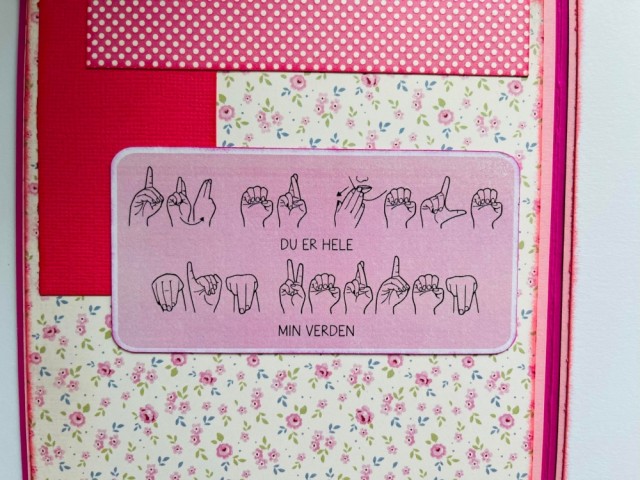 DU ER HELE
MIN VERDEN